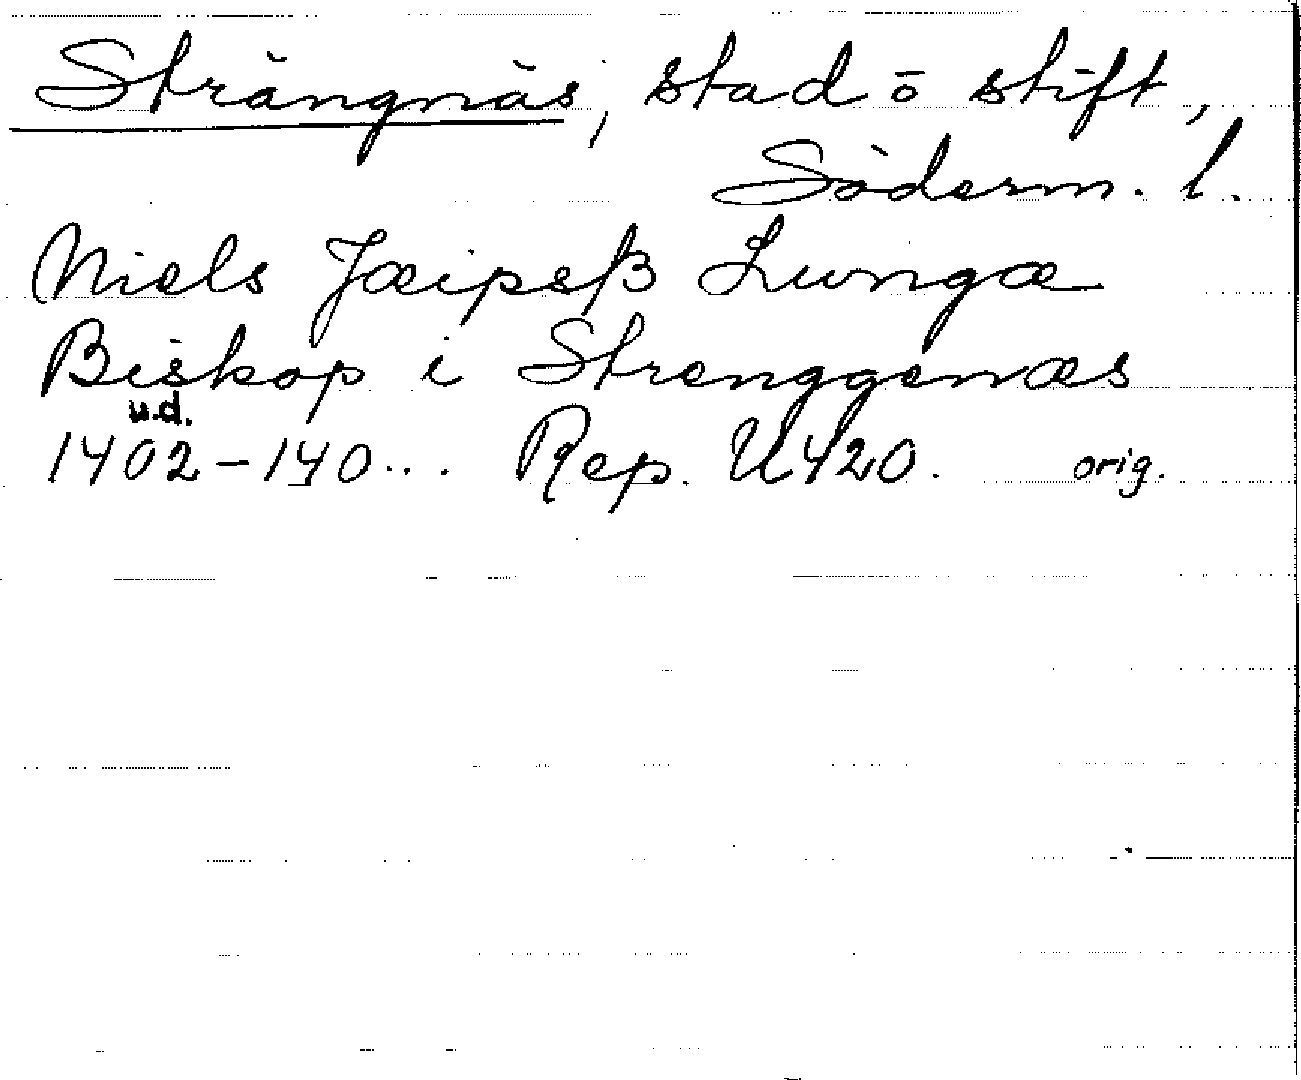 Strängnäs, stad ō stift,
Söderm. l.
Niels Jæipsß Lungæ
Biskop i Strenggenæs
u.d.
1402-140... Rep. U420. orig.